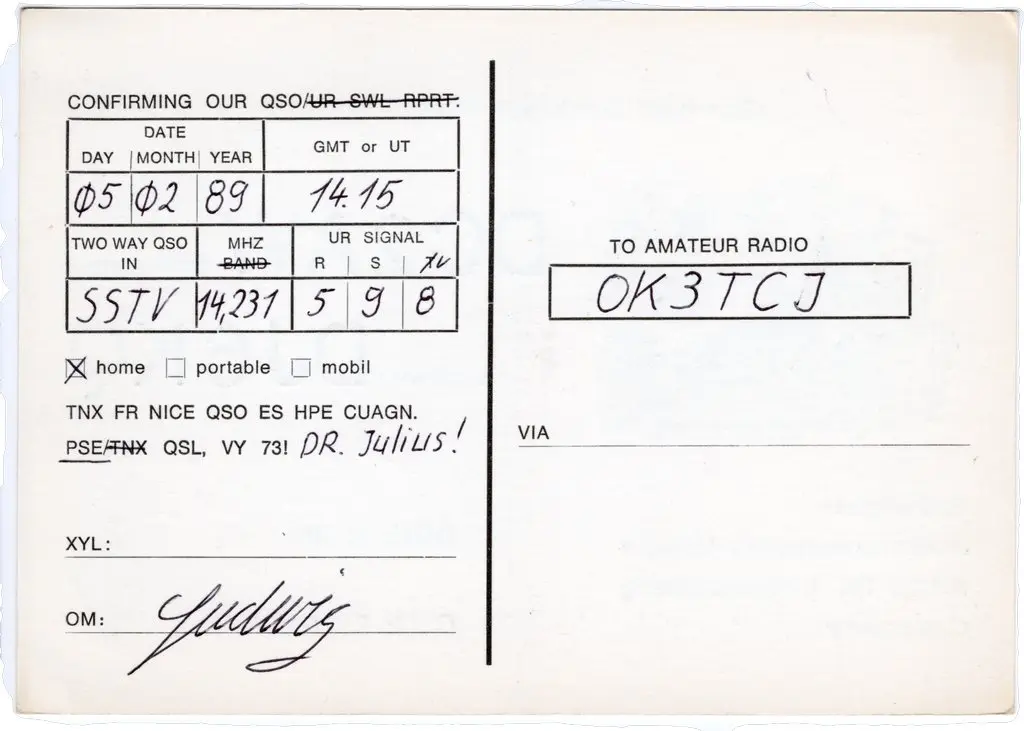 CONFIRMING OUR QSO/UR SWL RPRT:
DATE
DAY MONTH YEAR
GMT or UT
Ø5 Ø2 89 14.15
TWO WAY QSO IN
MHZ BAND
UR SIGNAL
R S TV
SSTV 14,231 5 9 8
home portable mobil
TNX FR NICE QSO ES HPE CUAGN.
PSE/TNX QSL, VY 73! DR. Julius!
XYL:
OM: Ludwig
TO AMATEUR RADIO
OK3TCJ
VIA